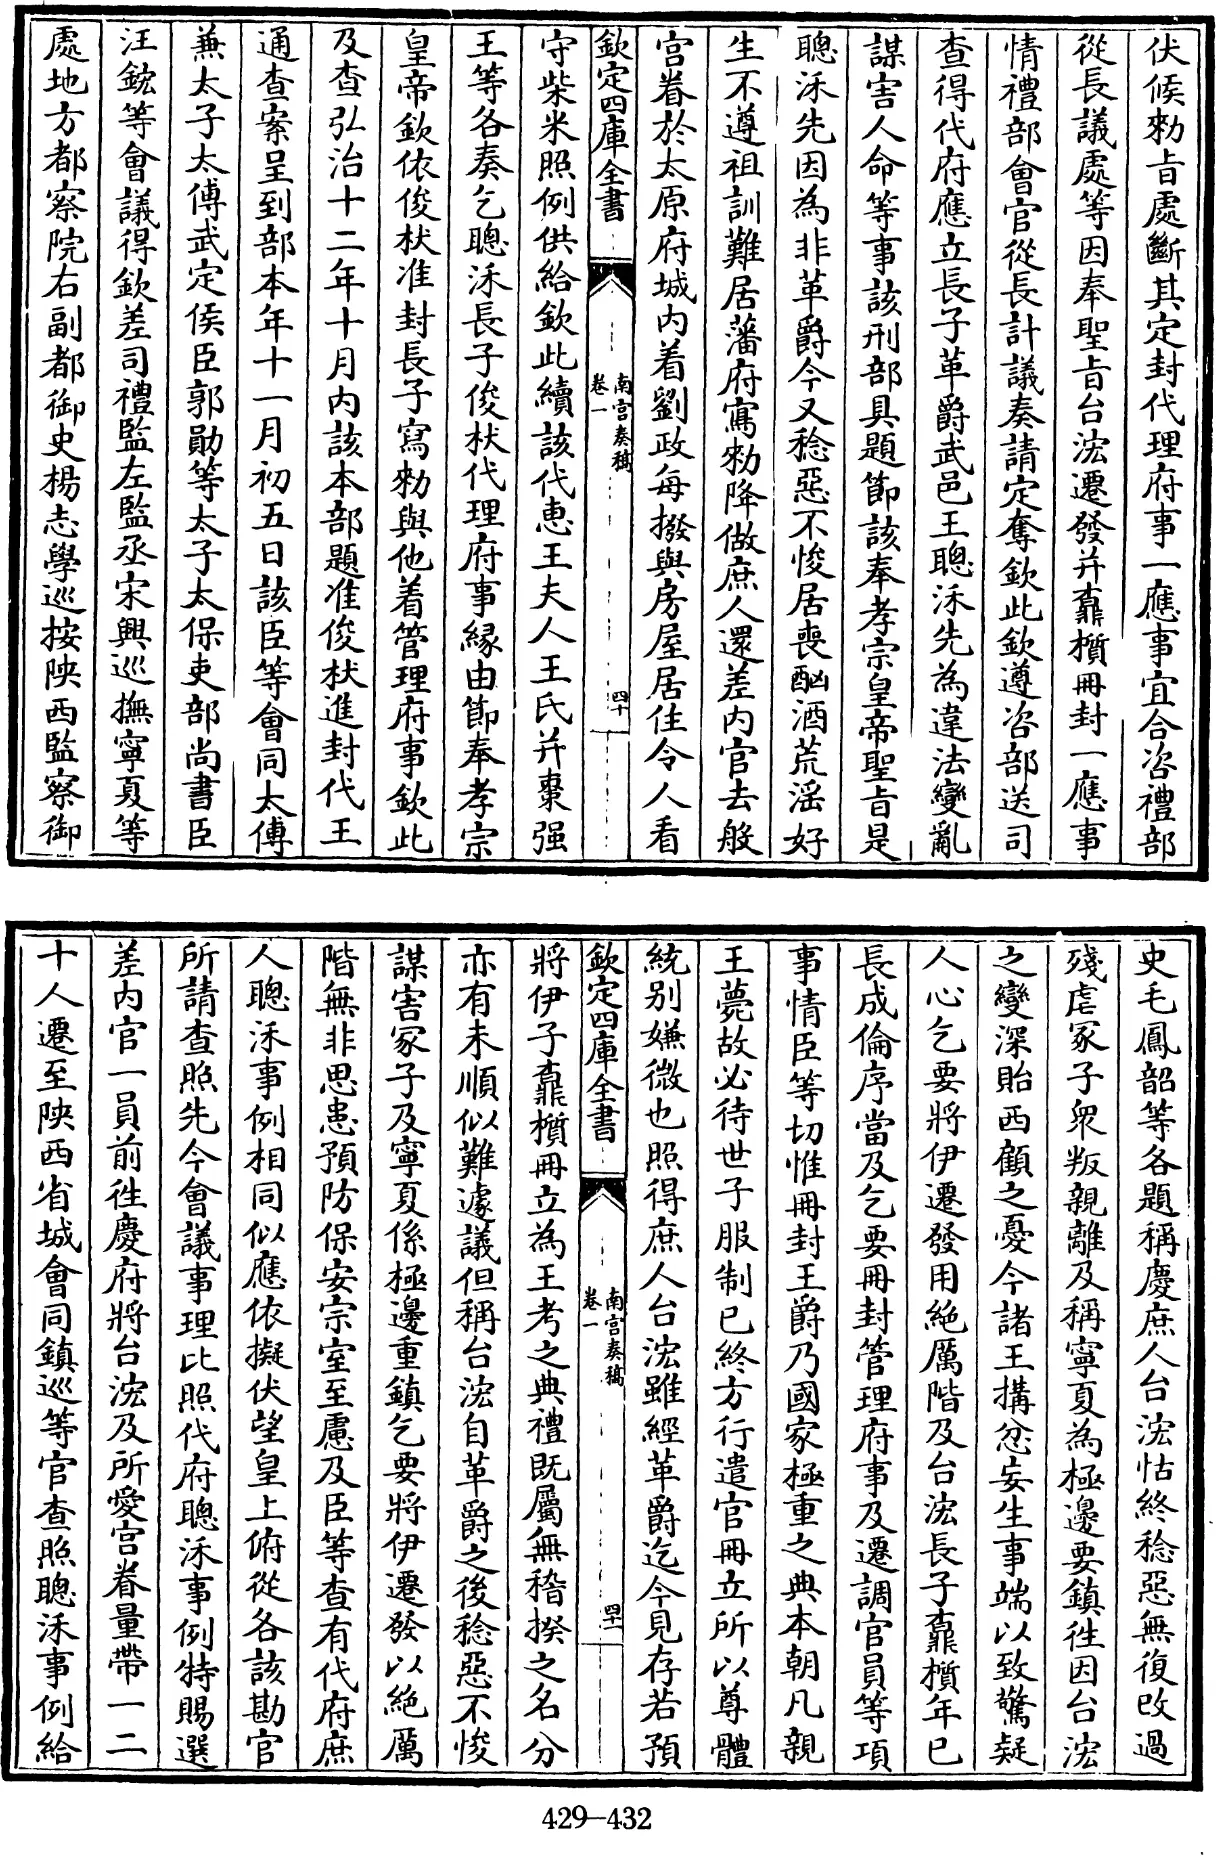 伏候勅㫖處斷其定封代理府事一應事宜合咨禮部
從長議處等因奉聖㫖台浤遷發并鼒櫍冊封一應事
情禮部會官從長計議奏請定奪欽此欽遵咨部送司
查得代府應立長子革爵武邑王聰沬先為違法變亂
謀害人命等事該刑部具題節該奉孝宗皇帝聖㫖是
聰沬先因為非革爵今又稔惡不悛居喪酗酒荒淫好
生不遵祖訓難居藩府寫勅降做庶人還差内官去般
宫眷於太原府城内着劉政每撥與房屋居住令人看
欽定四庫全書
南宫奏稿
卷一
四十
守柴米照例供給欽此續該代惠王夫人王氏并棗强
王等各奏乞聰沬長子俊杕代理府事縁由節奉孝宗
皇帝欽依俊杕准封長子寫勅與他着管理府事欽此
及查弘治十二年十月内該本部題准俊杕進封代王
通查案呈到部本年十一月初五日該臣等會同太傅
兼太子太傅武定侯臣郭勛等太子太保吏部尚書臣
汪鋐等會議得欽差司禮監左監丞宋興巡撫寧夏等
處地方都察院右副都御史楊志學巡按陜西監察御
史毛鳳韶等各題稱慶庶人台浤怙終稔惡無復改過
殘虐冢子衆叛親離及稱寧夏為極邊要鎮徃因台浤
之變深貽西顧之憂今諸王搆忿妄生事端以致驚疑
人心乞要將伊遷發用絶厲階及台浤長子鼒櫍年已
長成倫序當及乞要冊封管理府事及遷調官員等項
事情臣等切惟冊封王爵乃國家極重之典本朝凡親
王薨故必待世子服制已終方行遣官冊立所以尊體
統别嫌微也照得庶人台浤雖經革爵迄今見存若預
欽定四庫全書
南宫奏稿
卷一
四十一
將伊子鼒櫍冊立為王考之典禮既屬無稽揆之名分
亦有未順似難遽議但稱台浤自革爵之後稔惡不悛
謀害冢子及寧夏係極邊重鎮乞要將伊遷發以絶厲
階無非思患預防保安宗室至慮及臣等查有代府庶
人聰沬事例相同似應依擬伏望皇上俯從各該勘官
所請查照先今會議事理比照代府聰沬事例特賜選
差内官一員前徃慶府將台浤及所愛宫眷量帶一二
十人遷至陜西省城會同鎮巡等官查照聰沬事例給
429—432